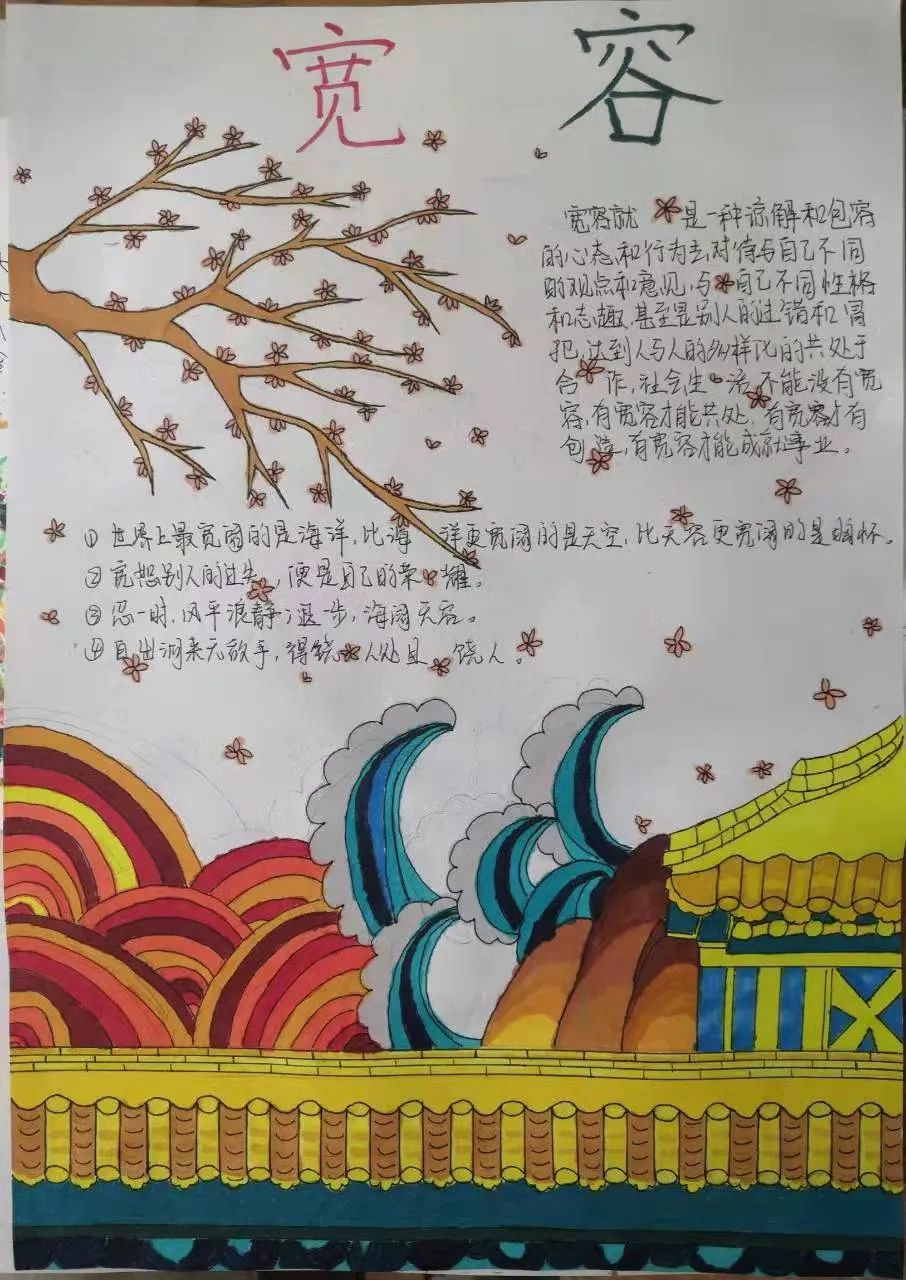 宽容
宽容就是一种谅解和包容
的心态和行为去对待与自己不同
的观点和意见,与自己不同性格
和志趣,甚至是别人的过错和冒
犯,达到人与人的多样化的共处于
合作,社会生活不能没有宽
容,有宽容才能共处,有宽容才有
包,有宽容才能成就事业。
①世界上最宽阔的是海洋,比海洋更宽阔的是天空,比天容更宽阔的是胸怀。
②宽恕别人的过失,便是自己的荣耀。
③忍一时,风平浪静;退一步,海阔天容。
④自出洞来无敌手,得饶人处且饶人。